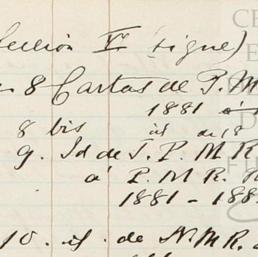 Sección Iª (sigue)
8 Cartas de J. M
1881 á
8 bis id de 18
9. Id de J. P. M R
á P. M R.
1881 - 188
10. id. de N. M R.